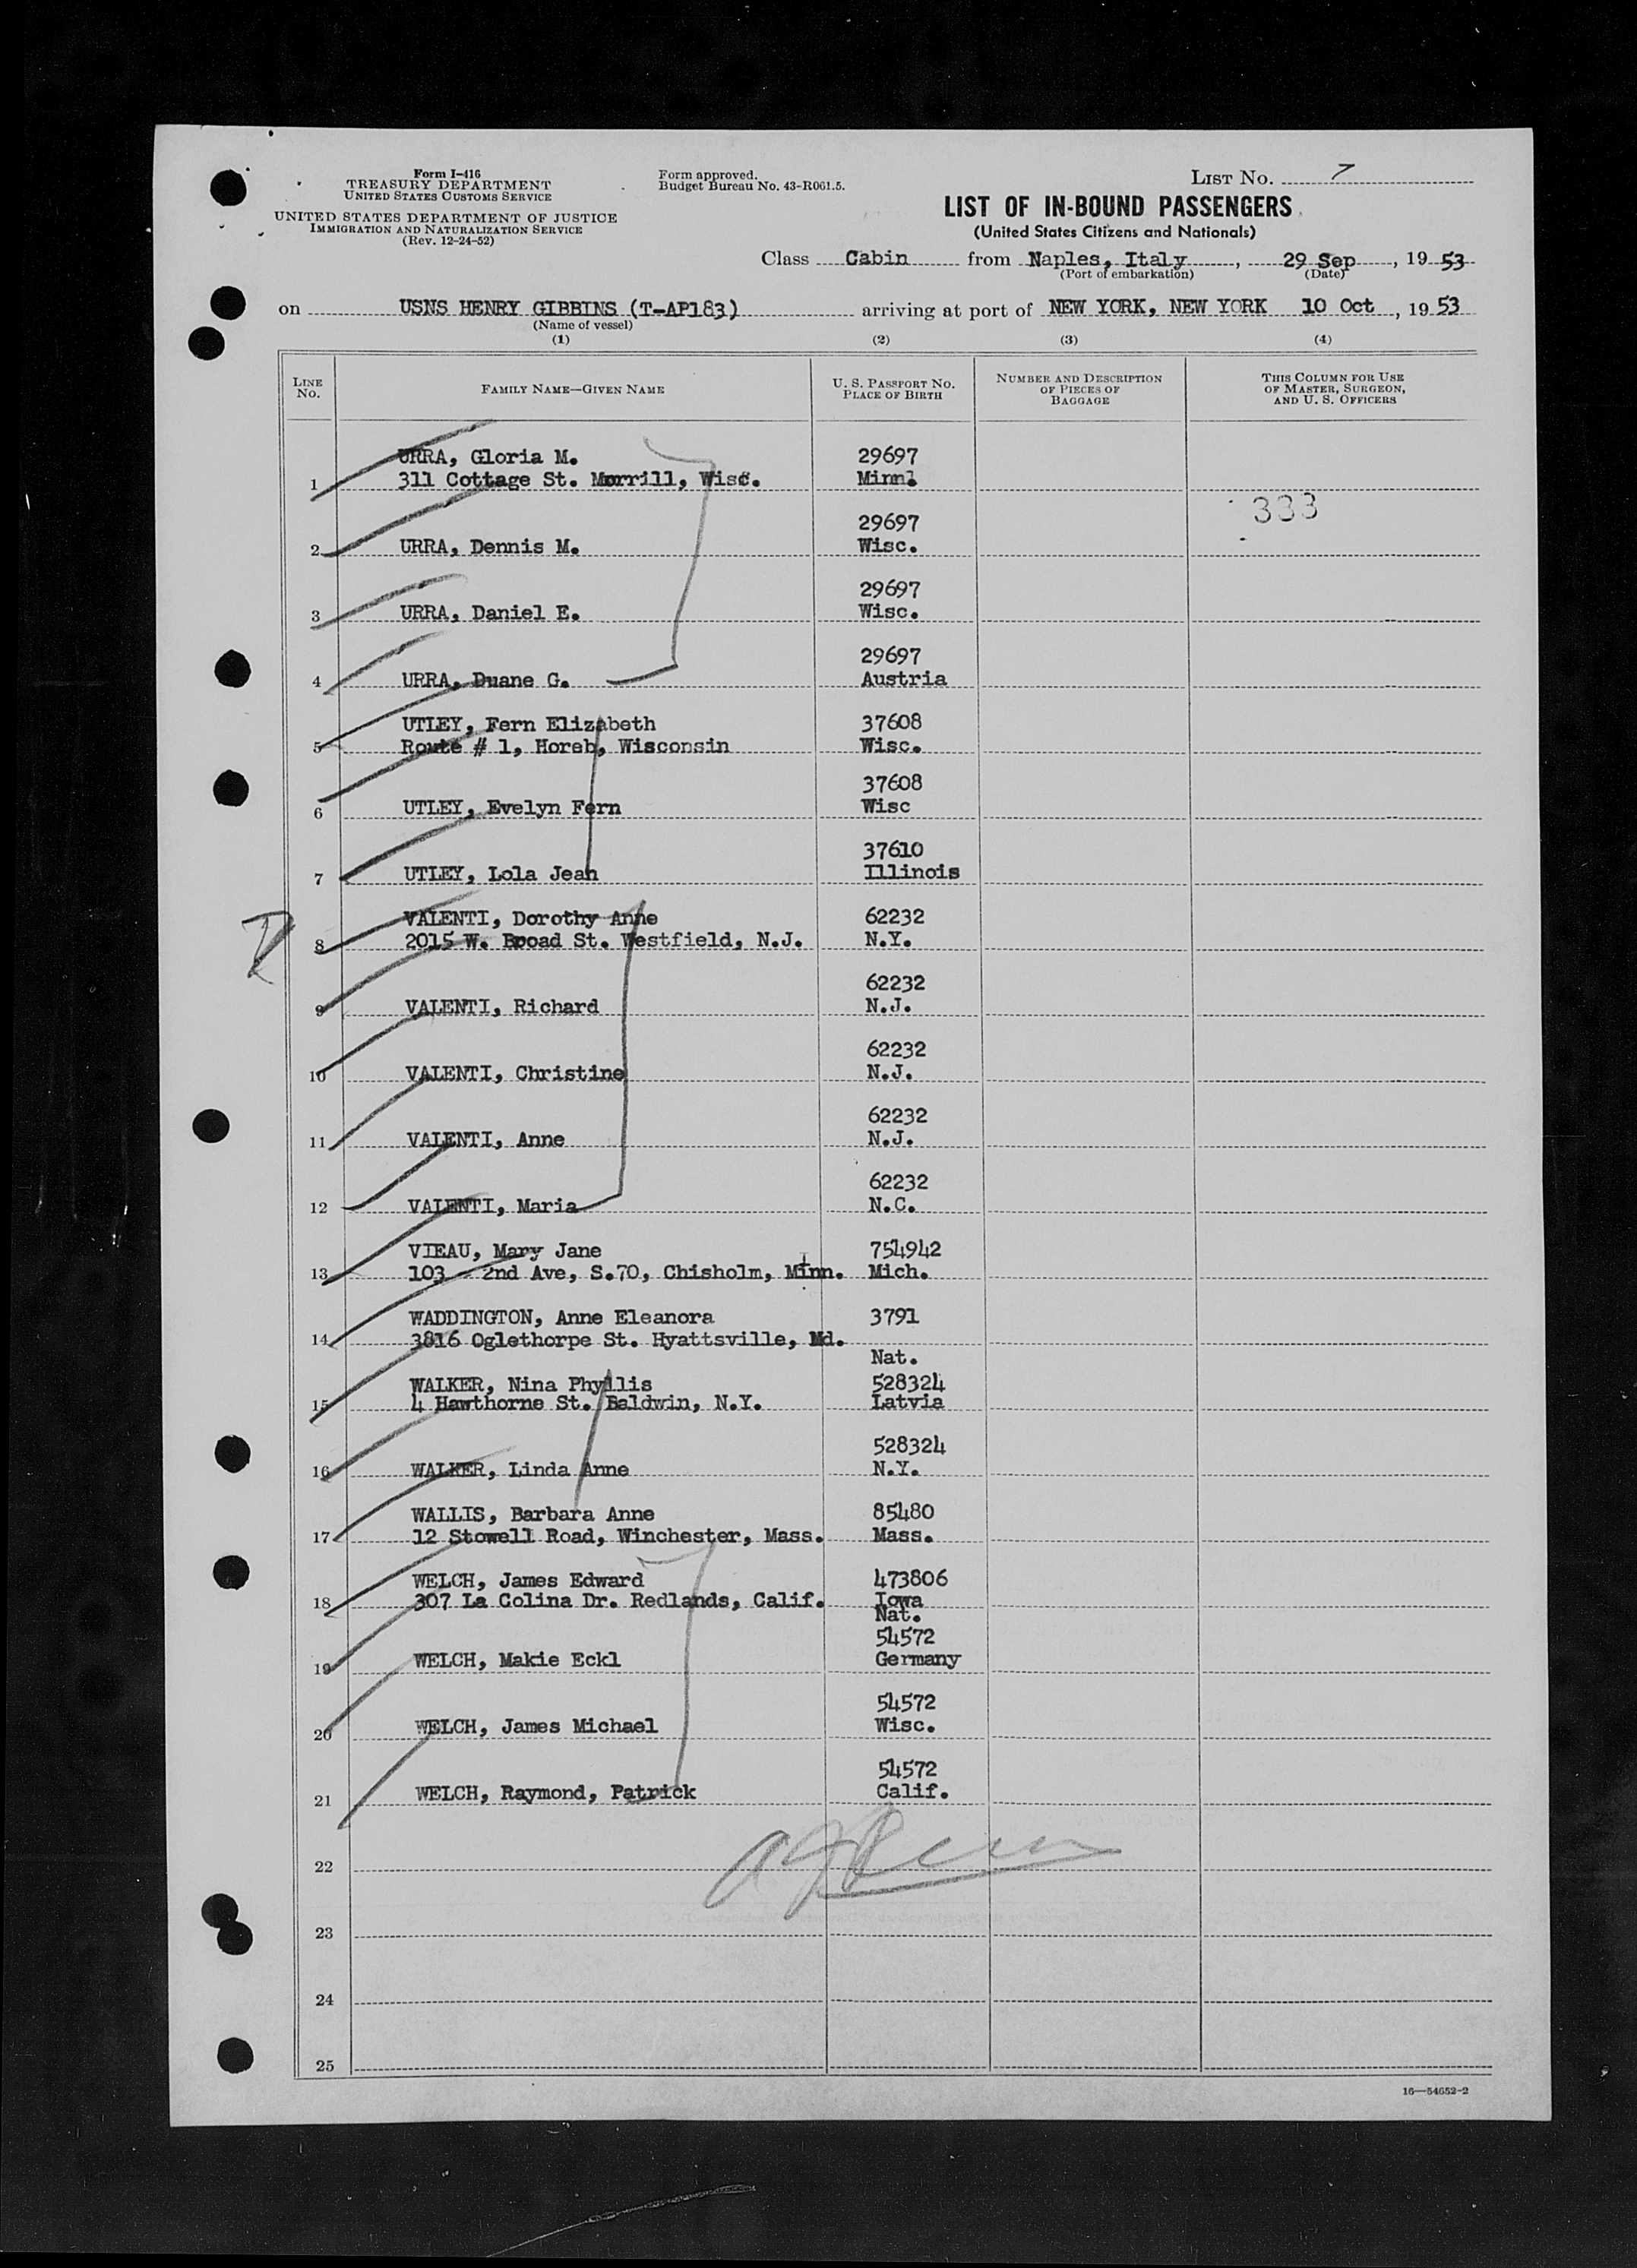 Form I-416
TREASURY DEPARTMENT
UNITED STATES CUSTOMS SERVICE
UNITED STATES DEPARTMENT OF JUSTICE
IMMIGRATION AND NATURALIZATION SERVICE
(Rev. 12-24-52)
Form approved.
Budget Bureau No. 43-R061.5.
LIST NO. 7
LIST OF IN-BOUND PASSENGERS
(United States Citizens and Nationals)
Class Cabin from Naples, Italy, 29 Sep, 1953
(Port of embarkation) (Date)
on USNS HENRY GIBBINS (T-AP183) arriving at port of NEW YORK, NEW YORK 10 Oct, 1953
(Name of vessel)
(1) (2) (3) (4)
LINE NO. FAMILY NAME—GIVEN NAME U. S. PASSPORT NO. PLACE OF BIRTH NUMBER AND DESCRIPTION OF PIECES OF BAGGAGE THIS COLUMN FOR USE OF MASTER, SURGEON, AND U. S. OFFICERS
URRA, Gloria M. 29697
1 311 Cottage St. Morrill, Wisc. Minn.
333
29697
2 URRA, Dennis M. Wisc.
29697
3 URRA, Daniel E. Wisc.
29697
4 URRA, Duane G. Austria
UTLEY, Fern Elizabeth 37608
5 Route # 1, Horeb, Wisconsin Wisc.
37608
6 UTLEY, Evelyn Fern Wisc
37610
7 UTLEY, Lola Jean Illinois
VALENTI, Dorothy Anne 62232
8 2015 W. Broad St. Westfield, N.J. N.Y.
62232
9 VALENTI, Richard N.J.
62232
10 VALENTI, Christine N.J.
62232
11 VALENTI, Anne N.J.
62232
12 VALENTI, Maria N.C.
VIEAU, Mary Jane 754942
13 103 - 2nd Ave, S.70, Chisholm, Minn. Mich.
WADDINGTON, Anne Eleanora 3791
14 3816 Oglethorpe St. Hyattsville, Md.
Nat.
WALKER, Nina Phyllis 528324
15 4 Hawthorne St. Baldwin, N.Y. Latvia
528324
16 WALKER, Linda Anne N.Y.
WALLIS, Barbara Anne 85480
17 12 Stowell Road, Winchester, Mass. Mass.
WELCH, James Edward 473806
18 307 La Colina Dr. Redlands, Calif. Iowa
Nat.
54572
19 WELCH, Makie Eckl Germany
54572
20 WELCH, James Michael Wisc.
54572
21 WELCH, Raymond, Patrick Calif.
22
23
24
25
16—54652-2